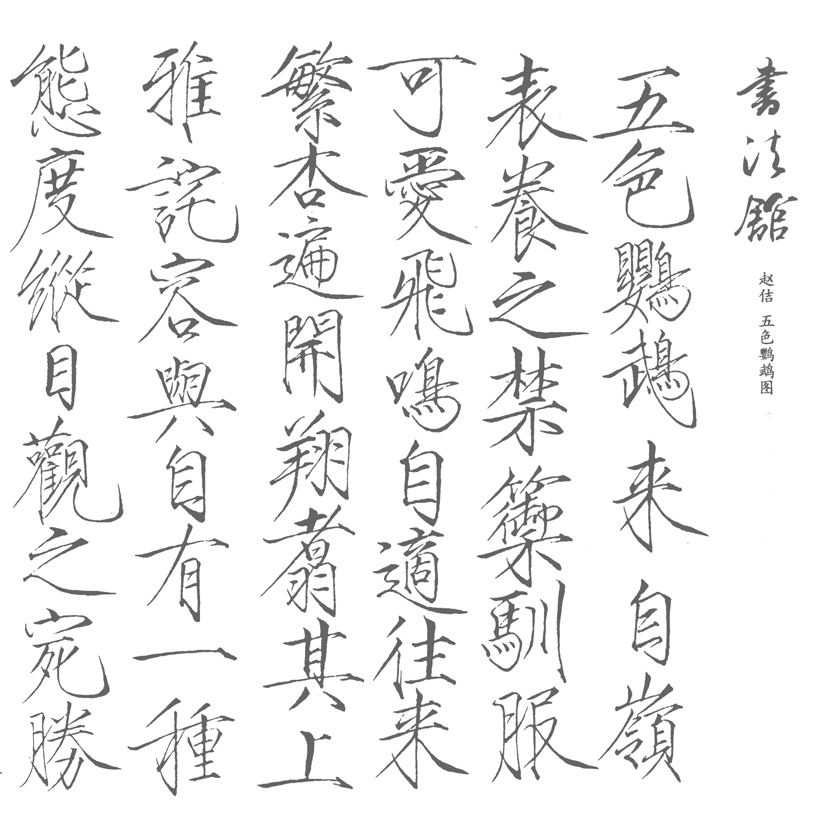 書法舘
赵佶 五色鹦鹉图
五色鸚鵡来自嶺
表養之禁籞馴服
可愛飛鳴自適往来
繁杏遍開翔翥其上
雅詫容與自有一種
態度縱目觀之宛勝